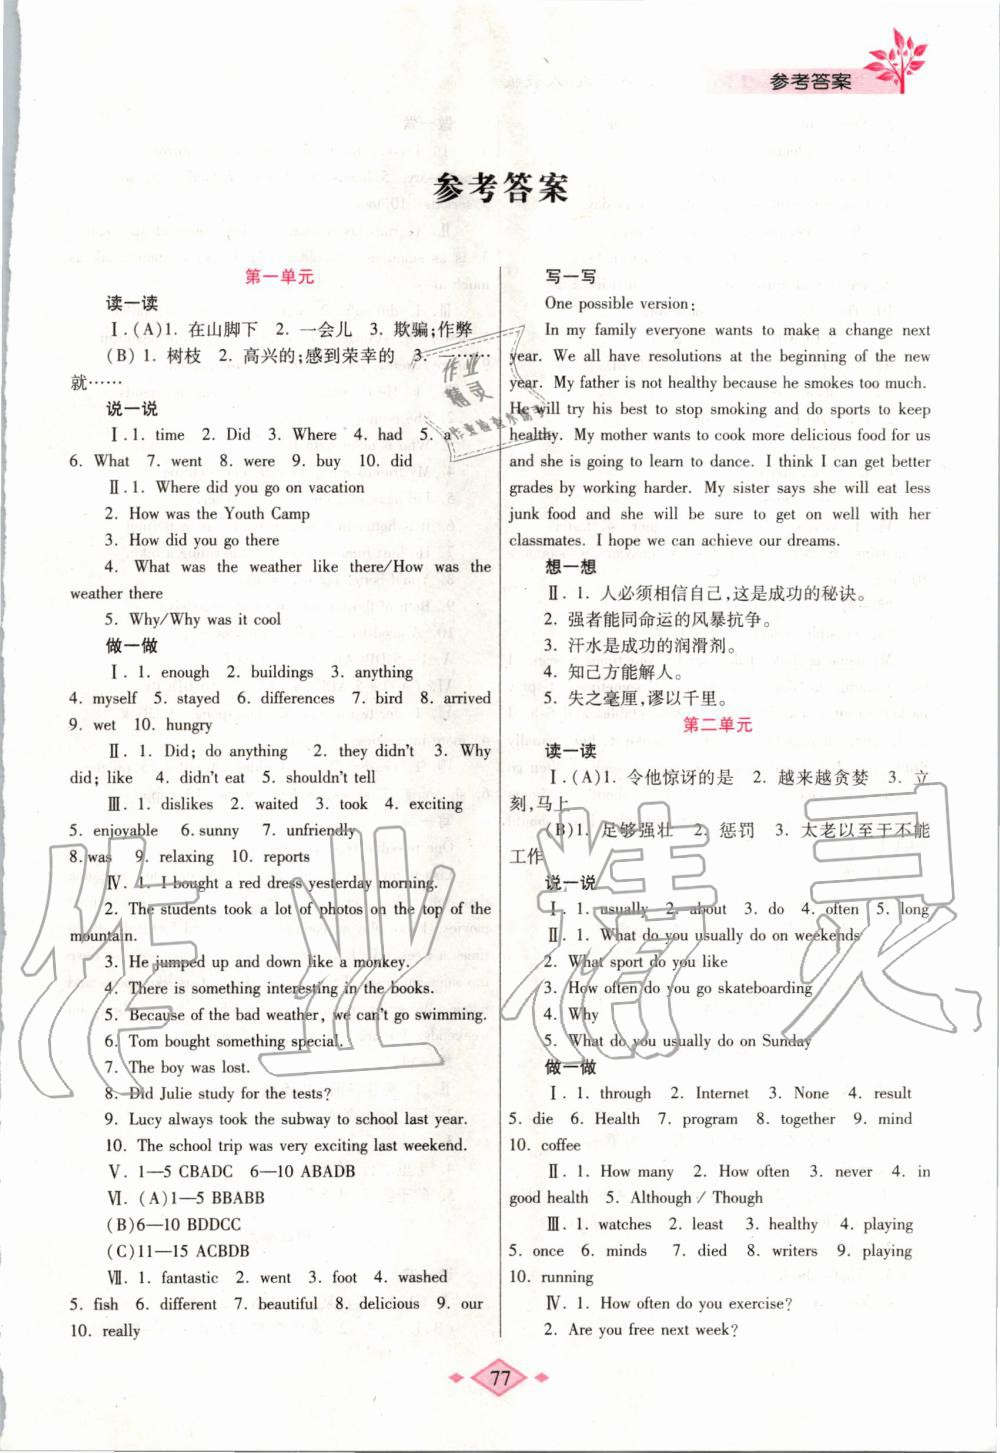 参考答案
参考答案
第一单元
读一读
Ⅰ. (A)1. 在山脚下 2. 一会儿 3. 欺骗;作弊
(B) 1. 树枝 2. 高兴的;感到荣幸的 3. 一……
就……
说一说
Ⅰ. 1. time 2. Did 3. Where 4. had 5. a
6. What 7. went 8. were 9. buy 10. did
Ⅱ. 1. Where did you go on vacation
2. How was the Youth Camp
3. How did you go there
4. What was the weather like there/How was the
weather there
5. Why/Why was it cool
做一做
Ⅰ. 1. enough 2. buildings 3. anything
4. myself 5. stayed 6. differences 7. bird 8. arrived
9. wet 10. hungry
Ⅱ. 1. Did; do anything 2. they didn't 3. Why
did; like 4. didn't eat 5. shouldn't tell
Ⅲ. 1. dislikes 2. waited 3. took 4. exciting
5. enjoyable 6. sunny 7. unfriendly
8. was 9. relaxing 10. reports
Ⅳ. 1. I bought a red dress yesterday morning.
2. The students took a lot of photos on the top of the
mountain.
3. He jumped up and down like a monkey.
4. There is something interesting in the books.
5. Because of the bad weather, we can't go swimming.
6. Tom bought something special.
7. The boy was lost.
8. Did Julie study for the tests?
9. Lucy always took the subway to school last year.
10. The school trip was very exciting last weekend.
Ⅴ. 1—5 CBADC 6—10 ABADB
Ⅵ. (A)1—5 BBABB
(B)6—10 BDDCC
(C)11—15 ACBDB
Ⅶ. 1. fantastic 2. went 3. foot 4. washed
5. fish 6. different 7. beautiful 8. delicious 9. our
10. really
写一写
One possible version:
In my family everyone wants to make a change next
year. We all have resolutions at the beginning of the new
year. My father is not healthy because he smokes too much.
He will try his best to stop smoking and do sports to keep
healthy. My mother wants to cook more delicious food for us
and she is going to learn to dance. I think I can get better
grades by working harder. My sister says she will eat less
junk food and she will be sure to get on well with her
classmates. I hope we can achieve our dreams.
想一想
Ⅱ. 1. 人必须相信自己,这是成功的秘诀。
2. 强者能同命运的风暴抗争。
3. 汗水是成功的润滑剂。
4. 知己方能解人。
5. 失之毫厘,谬以千里。
第二单元
读一读
Ⅰ. (A)1. 令他惊讶的是 2. 越来越贪婪 3. 立
刻,马上
(B)1. 足够强壮 2. 惩罚 3. 太老以至于不能
工作
说一说
Ⅰ. 1. usually 2. about 3. do 4. often 5. long
Ⅱ. 1. What do you usually do on weekends
2. What sport do you like
3. How often do you go skateboarding
4. Why
5. What do you usually do on Sunday
做一做
Ⅰ. 1. through 2. Internet 3. None 4. result
5. die 6. Health 7. program 8. together 9. mind
10. coffee
Ⅱ. 1. How many 2. How often 3. never 4. in
good health 5. Although/Though
Ⅲ. 1. watches 2. least 3. healthy 4. playing
5. once 6. minds 7. died 8. writers 9. playing
10. running
Ⅳ. 1. How often do you exercise?
2. Are you free next week?
77
作业
精灵
作业检查小助手
作业精灵